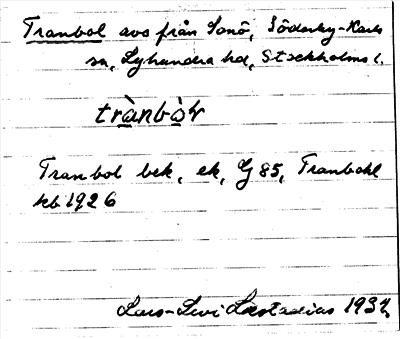 Tranbol avs från Senö, Söderby-Karls
sn, Lyhundra hd, Stockholms l.
trànbòr
Tranbol bek, ek, G 85, Tranbohl
kb 1926
Lars-Levi Læstadius 1937